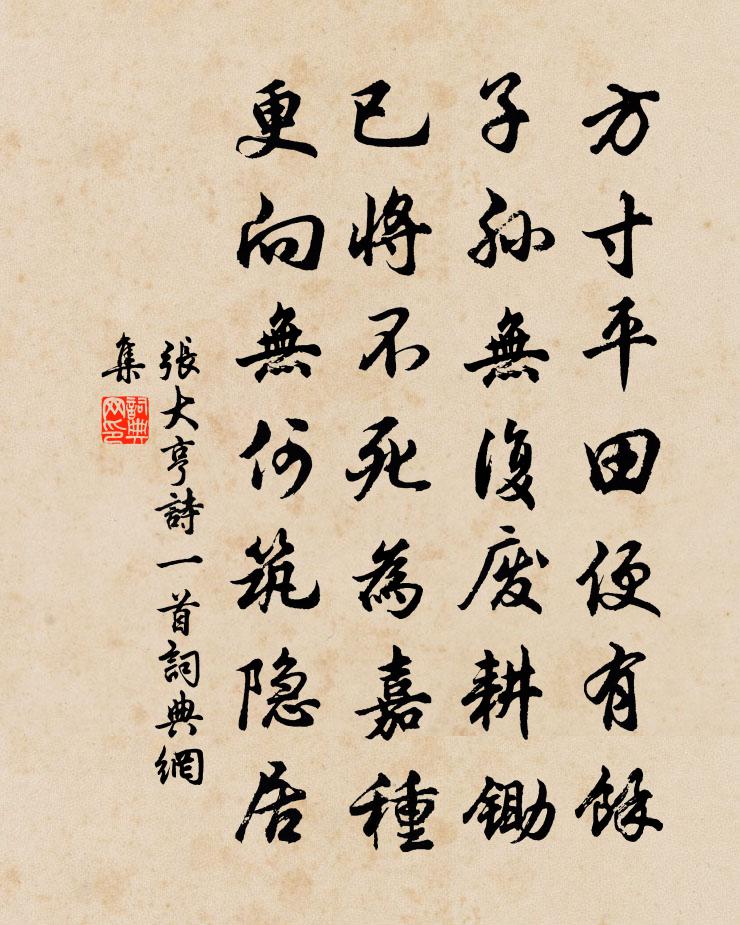 方寸平田便有餘
子孫無復废耕鋤
已將不死為嘉種
更向無何筑隐居
張大亨詩一首詞典網
集
詞典
网印